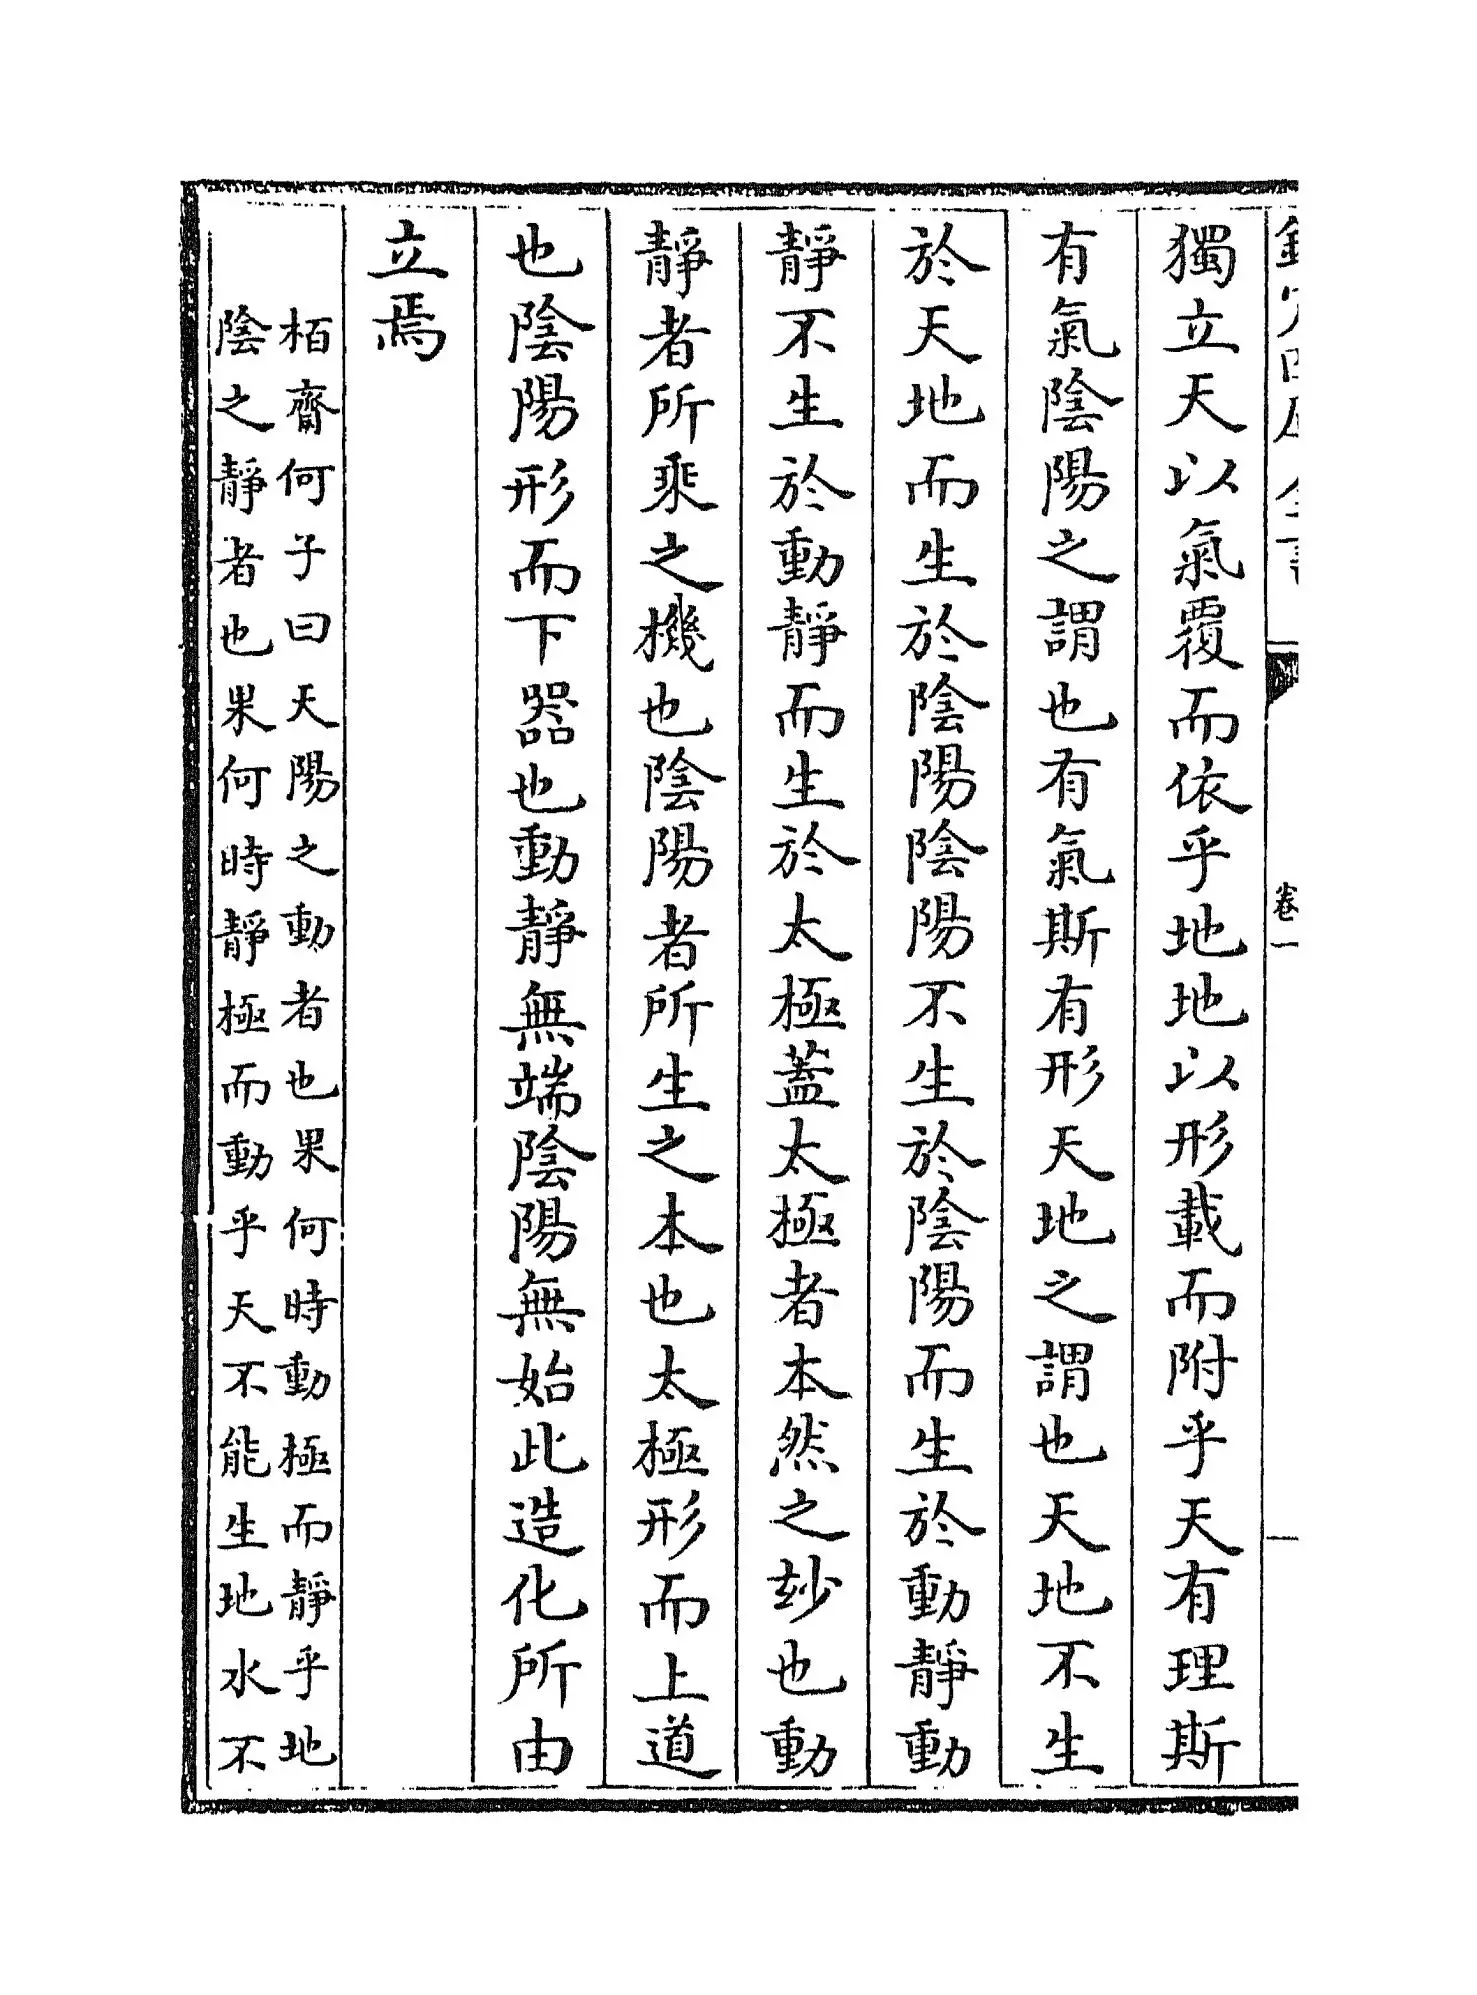 欽定四庫全書
卷一
獨立天以氣覆而依乎地地以形載而附乎天有理斯
有氣陰陽之謂也有氣斯有形天地之謂也天地不生
於天地而生於陰陽陰陽不生於陰陽而生於動靜動
靜不生於動靜而生於太極蓋太極者本然之玅也動
靜者所乘之機也陰陽者所生之本也太極形而上道
也陰陽形而下器也動靜無端陰陽無始此造化所由
立焉
栢齋何子曰天陽之動者也果何時動極而靜乎地
陰之靜者也果何時靜極而動乎天不能生地水不